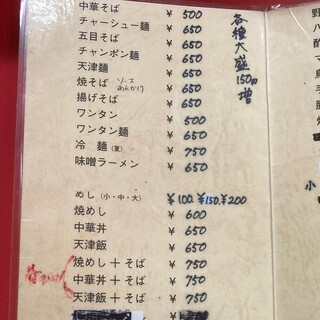 中華そば ¥ 500
チャーシュー麺 ¥ 650
五目そば ¥ 650
チャンポン麺 ¥ 650
天津麺 ¥ 650
焼そば ソース あんかけ ¥ 650
揚げそば ¥ 650
ワンタン ¥ 500
ワンタン麺 ¥ 650
冷麺(夏) ¥ 750
味噌ラーメン ¥ 650
めし(小・中・大) ¥100,¥150,¥200
焼めし ¥ 600
中華丼 ¥ 650
天津飯 ¥ 650
焼めし+そば ¥ 750
中華丼+そば ¥ 750
天津飯+そば ¥ 750
各種大盛150円増
野
八
酢
マ
小